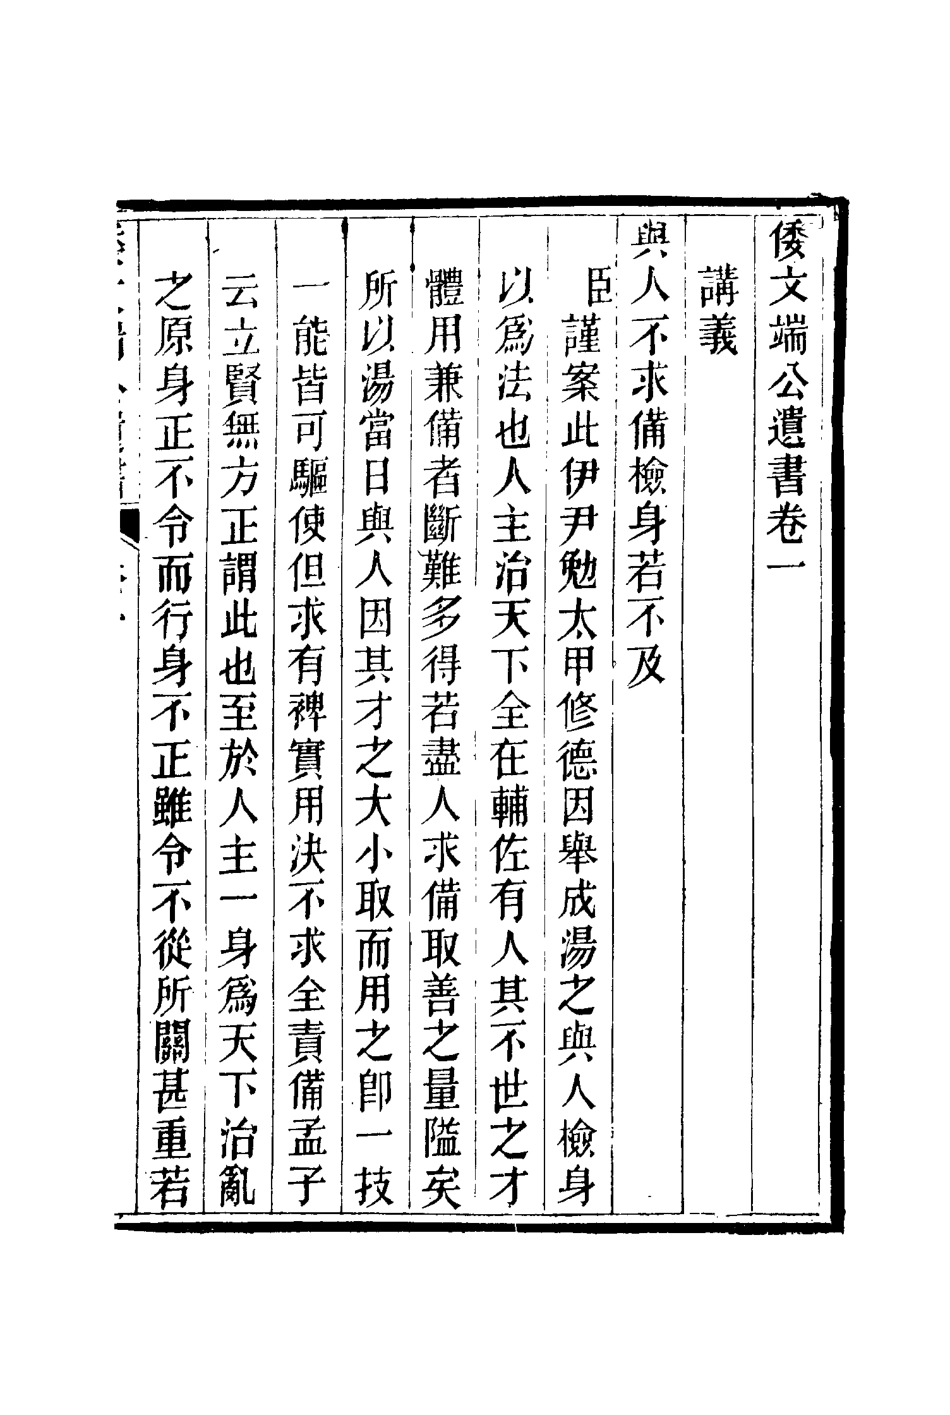 倭文端公遺書卷一
講義
與人不求備檢身若不及
臣謹案此伊尹勉太甲修德因舉成湯之與人檢身
以爲法也人主治天下全在輔佐有人其不世之才
體用兼備者斷難多得若盡人求備取善之量隘矣
所以湯當日與人因其才之大小取而用之卽一技
一能皆可驅使但求有裨實用決不求全責備孟子
云立賢無方正謂此也至於人主一身爲天下治亂
之原身正不令而行身不正雖令不從所關甚重若